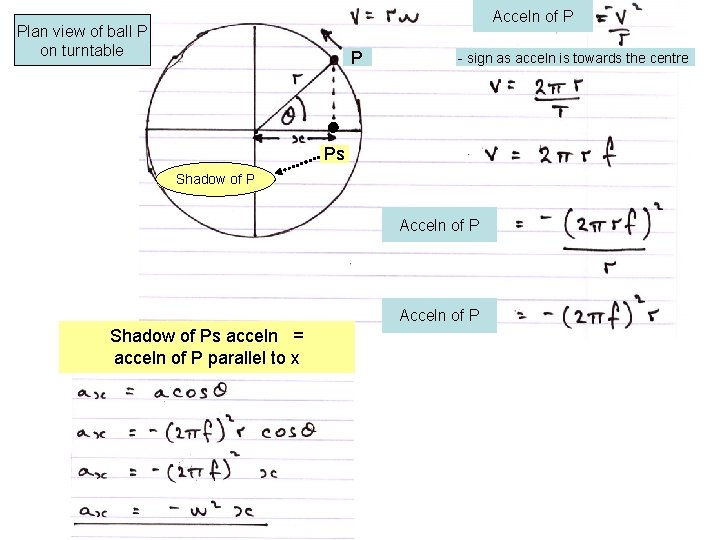 Plan view of ball P
on turntable
v = rw
P
r
θ
x
Ps
Shadow of P
Acceln of P = -v²/r
- sign as acceln is towards the centre
v = 2πr/T
v = 2πrf
Acceln of P = -(2πrf)²/r
Acceln of P = -(2πf)²r
Shadow of Ps acceln =
acceln of P parallel to x
ax = acosθ
ax = -(2πf)² r cosθ
ax = -(2πf)² x
ax = -w² x